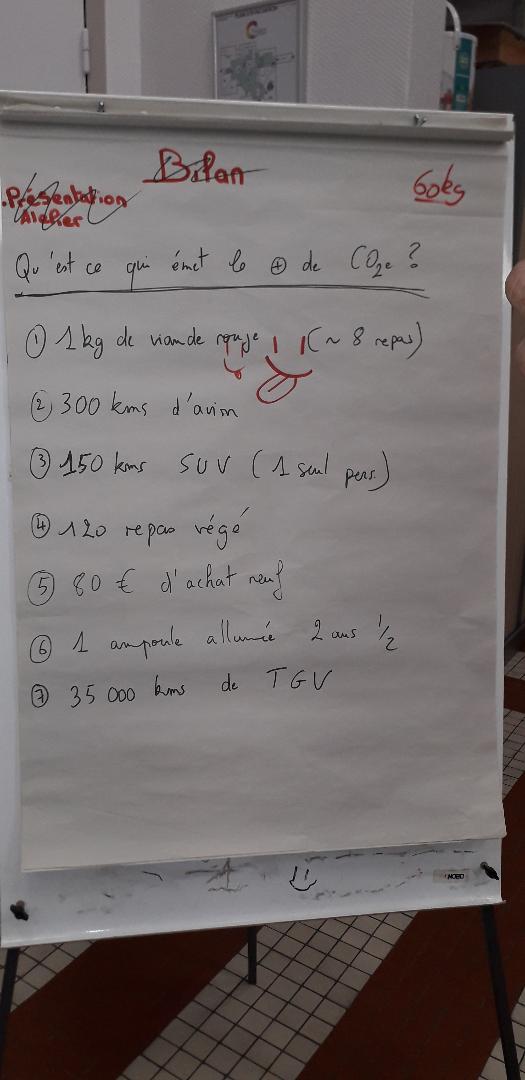 Bilan
60kg
.Présentation
Atelier
Qu'est ce qui émet le ⊕ de CO2e ?
① 1kg de viande rouge (~ 8 repas)
② 300 kms d'avion
③ 150 kms SUV (1 seul pers.)
④ 120 repas végé
⑤ 80 € d'achat neuf
⑥ 1 ampoule allumée 2 ans 1/2
⑦ 35 000 kms de TGV
NOBO